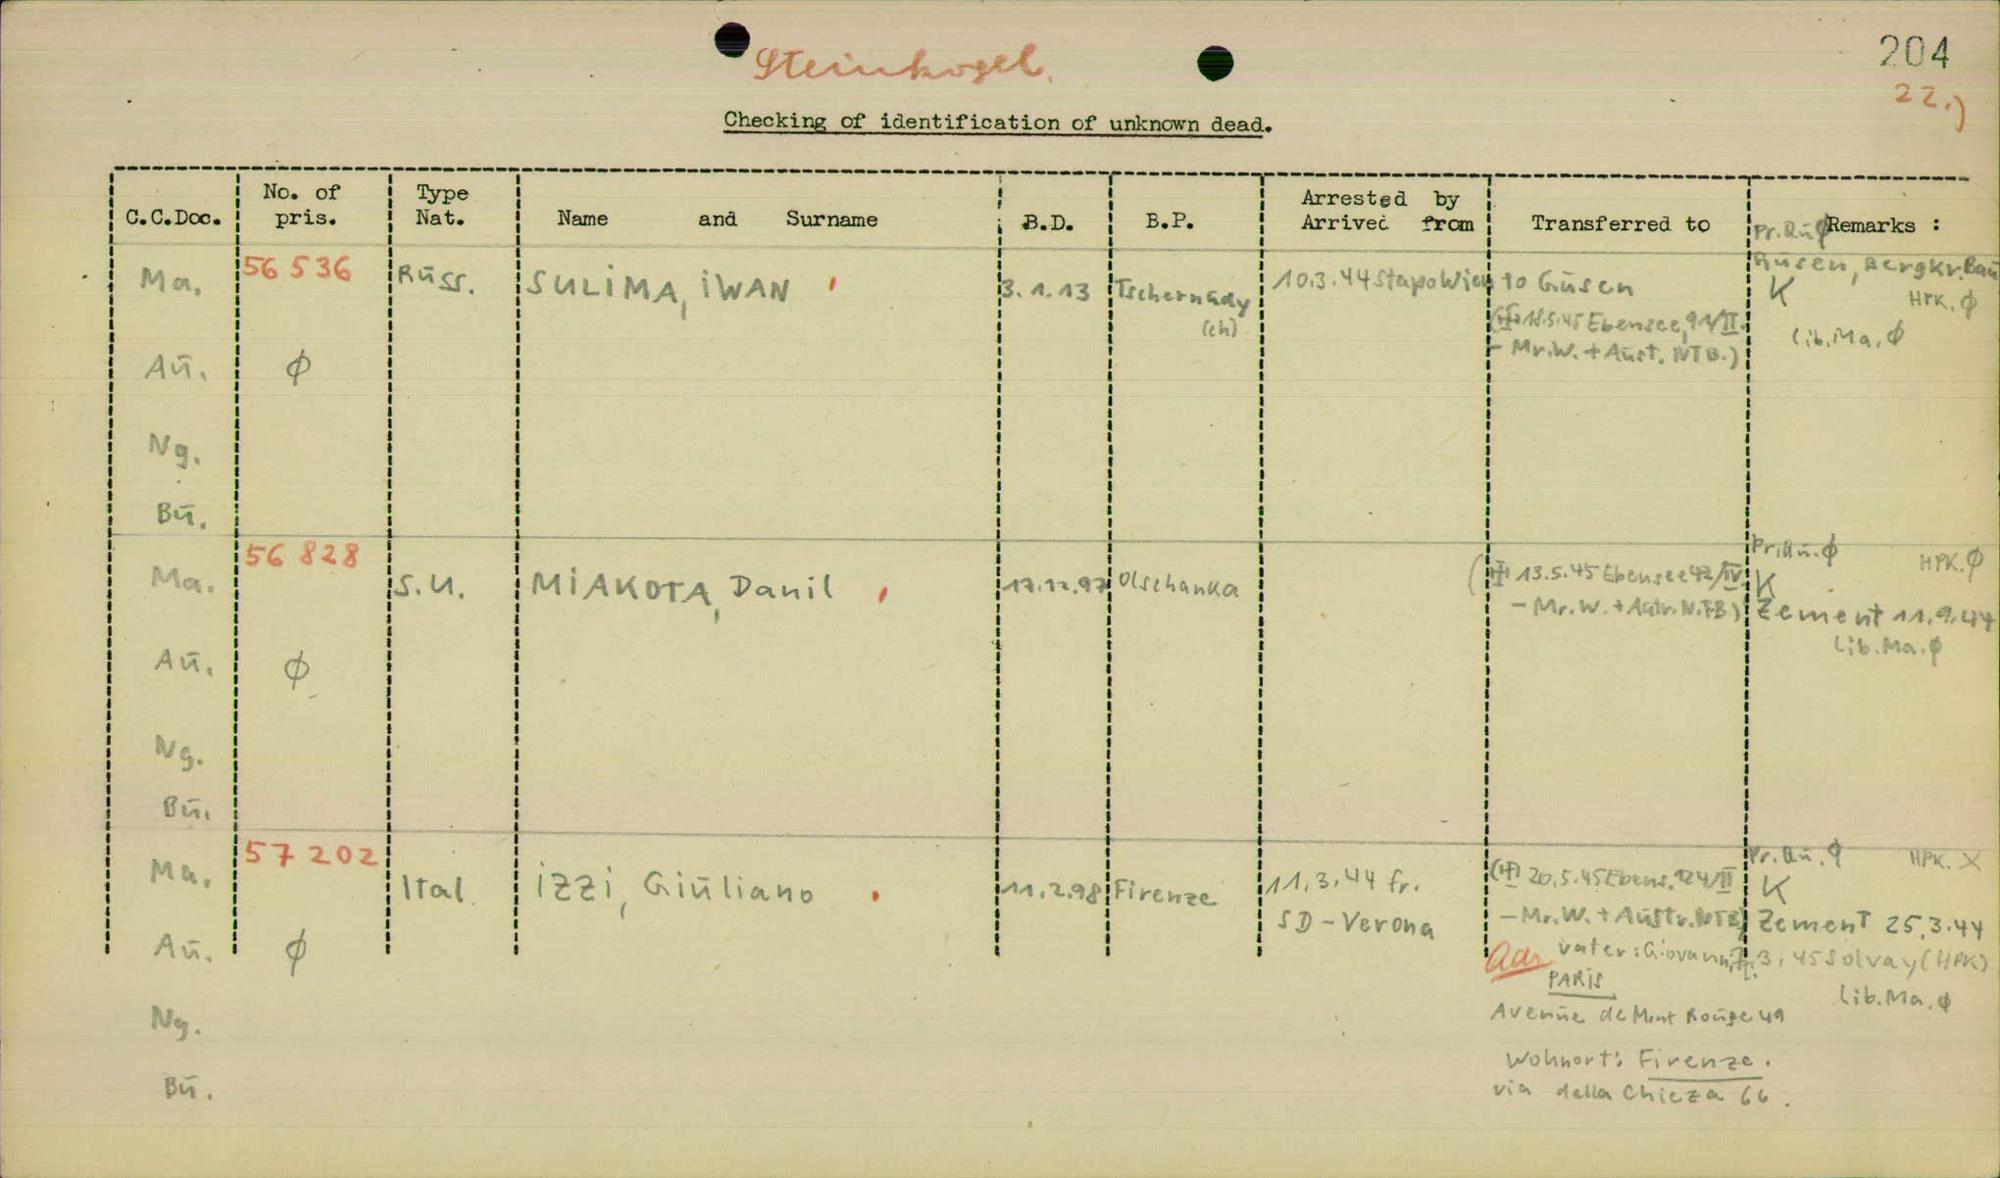 204
Steinkogel.
22.)
Checking of identification of unknown dead.
C.C.Doc. No. of pris. Type Nat. Name and Surname B.D. B.P. Arrested by Arrived from Transferred to Remarks :
Pr.Bū ϕ
Ma. 56 536 Rūss. SULIMA, IWAN 3.1.13 10.3.44 Stapo Wien to Gūsen
(ch)
Bergkr. Baū
K HPK. ϕ
18.5.45 Ebensee,
- Mr.W. + Aust. NTB.)
Lib. Ma. ϕ
Aū. ϕ
Ng.
Bū.
Pr.Bū. ϕ HPK. ϕ
Ma. 56 828 S.U. MIAKOTA, Danil Olschanka
13.5.45 Ebensee 42/IV
K
- Mr.W. + N.TB) Zement 11.9.44
Lib. Ma. ϕ
Aū. ϕ
Ng.
Bū.
Pr.Bū. HPK. X
Ma. 57 202 Ital. IZZI, Giūliano 11.2.98 Firenze 11.3.44 fr.
SD - Verona
20.5.45 Ebens. 124/II
K
- Mr.W. + Aūstr. NTB) Zement 25.3.44
Aū. ϕ
Adr vater: Giovanni, 3.45 Solvay (HPK)
PARIS
Lib. Ma. ϕ
Avenūe de Mont Roūge 49
Ng.
Wohnort: Firenze.
via della Chieza 66.
Bū.